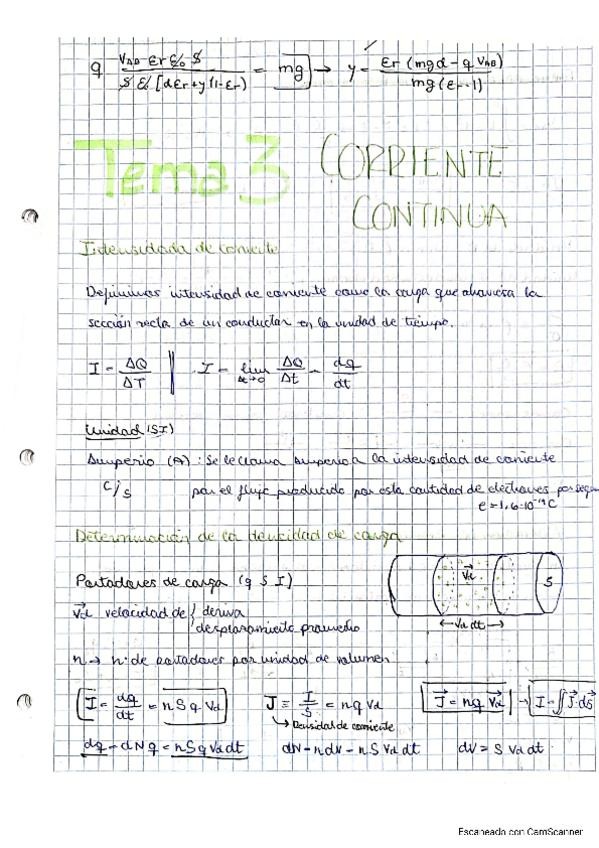 q \frac{V_{AB} εr ε₀ S}{S ε₀ [dεr + y(1-εr)} = mg → y = \frac{εr (mgd - q V_{AB})}{mg(εr-1)}
Tema 3 CORRIENTE
CONTINUA
Intensidada de corriente
Definimos intensidad de corriente como la carga que atraviesa la
sección recta de un conductor en la unidad de tiempo.
I = \frac{ΔQ}{ΔT} || I = lim_{Δt→0} \frac{ΔQ}{Δt} = \frac{dq}{dt}
Unidad (SI)
Amperio (A) : Se le llama amperio a la intensidad de corriente
C/s por el flujo producido por esta cantidad de electrones por segun
e = 1,6·10⁻¹⁹ C
Determinación de la densidad de carga
Portadores de carga (q S I)
Vd velocidad de { deriva
desplazamiento promedio
Vd
S
← Vd dt →
n → nº de portadores por unidad de volumen
I = \frac{dq}{dt} = n S q Vd J = \frac{I}{S} = nq Vd J = nq Vd → I = ∬ J·dS
↳ Densidad de corriente
dq = dN q = nSq Vd dt dN = n dV = n S Vd dt dV = S Vd dt
Escaneado con CamScanner